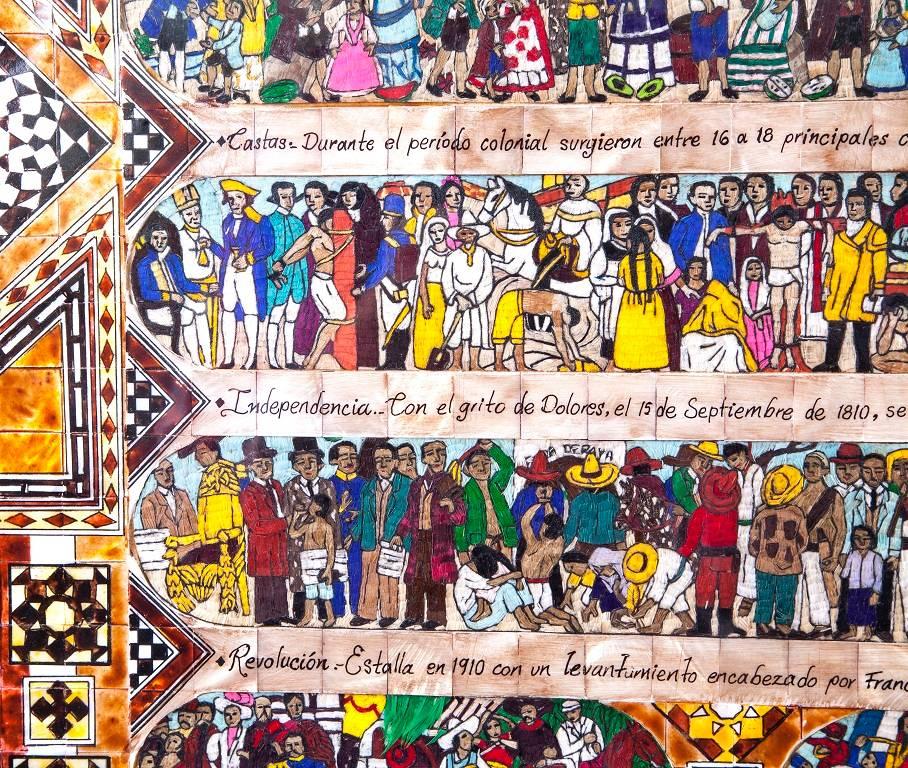 Castas.- Durante el período colonial surgieron entre 16 a 18 principales c
DE RAYA
Independencia.- Con el grito de Dolores, el 15 de Septiembre de 1810, se
Revolución.- Estalla en 1910 con un levantumiento encabezado por Franc